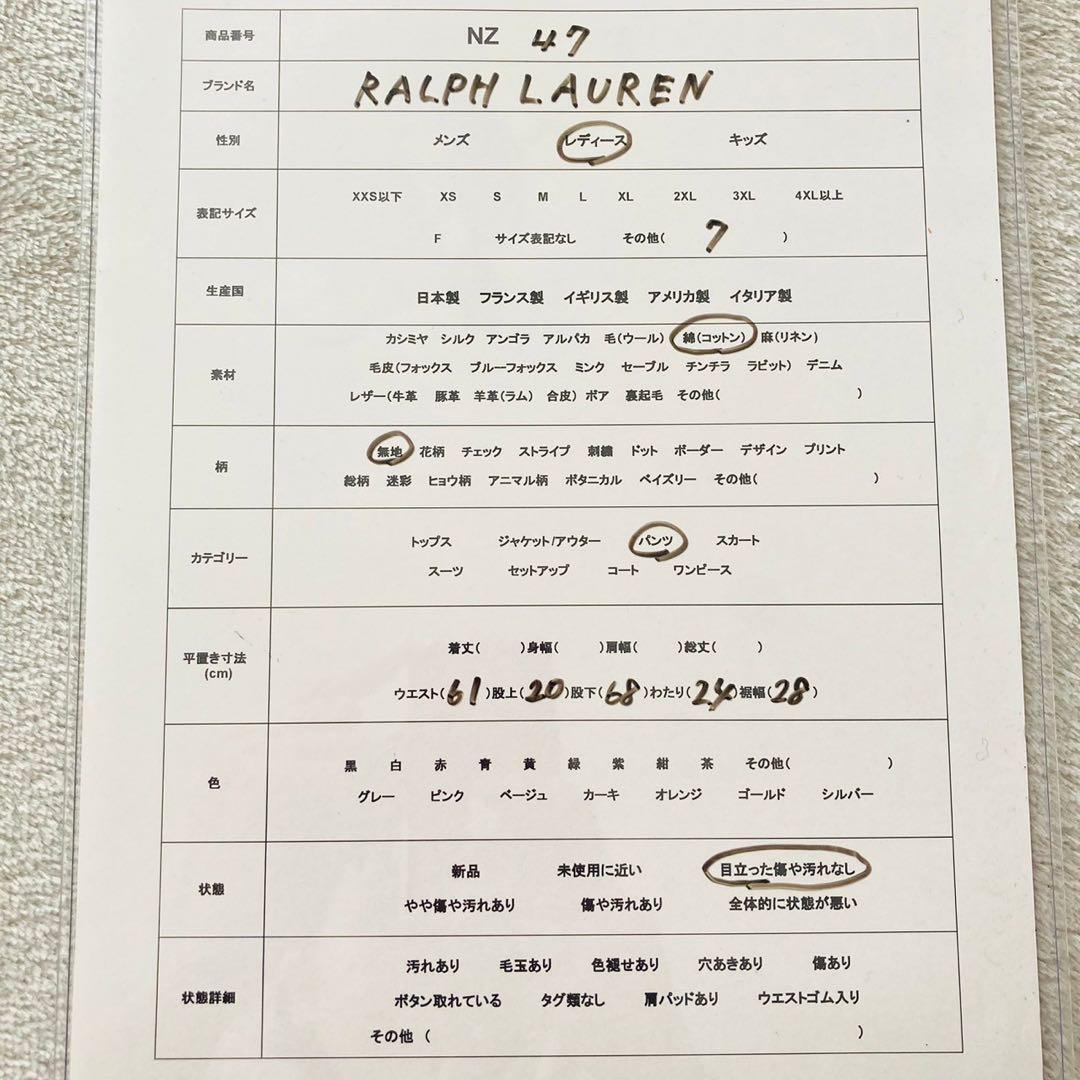 商品番号 NZ 47
ブランド名 RALPH LAUREN
性別 メンズ レディース キッズ
表記サイズ XXS以下 XS S M L XL 2XL 3XL 4XL以上
F サイズ表記なし その他( 7 )
生産国 日本製 フランス製 イギリス製 アメリカ製 イタリア製
素材 カシミヤ シルク アンゴラ アルパカ 毛(ウール) 綿(コットン) 麻(リネン)
毛皮(フォックス ブルーフォックス ミンク セーブル チンチラ ラビット) デニム
レザー(牛革 豚革 羊革(ラム) 合皮) ボア 裏起毛 その他( )
柄 無地 花柄 チェック ストライプ 刺繍 ドット ボーダー デザイン プリント
総柄 迷彩 ヒョウ柄 アニマル柄 ボタニカル ペイズリー その他( )
カテゴリー トップス ジャケット/アウター パンツ スカート
スーツ セットアップ コート ワンピース
平置き寸法 (cm) 着丈( )身幅( )肩幅( )総丈( )
ウエスト(61)股上(20)股下(68)わたり(24)裾幅(28)
色 黒 白 赤 青 黄 緑 紫 紺 茶 その他( )
グレー ピンク ベージュ カーキ オレンジ ゴールド シルバー
状態 新品 未使用に近い 目立った傷や汚れなし
やや傷や汚れあり 傷や汚れあり 全体的に状態が悪い
状態詳細 汚れあり 毛玉あり 色褪せあり 穴あきあり 傷あり
ボタン取れている タグ類なし 肩パッドあり ウエストゴム入り
その他 ( )